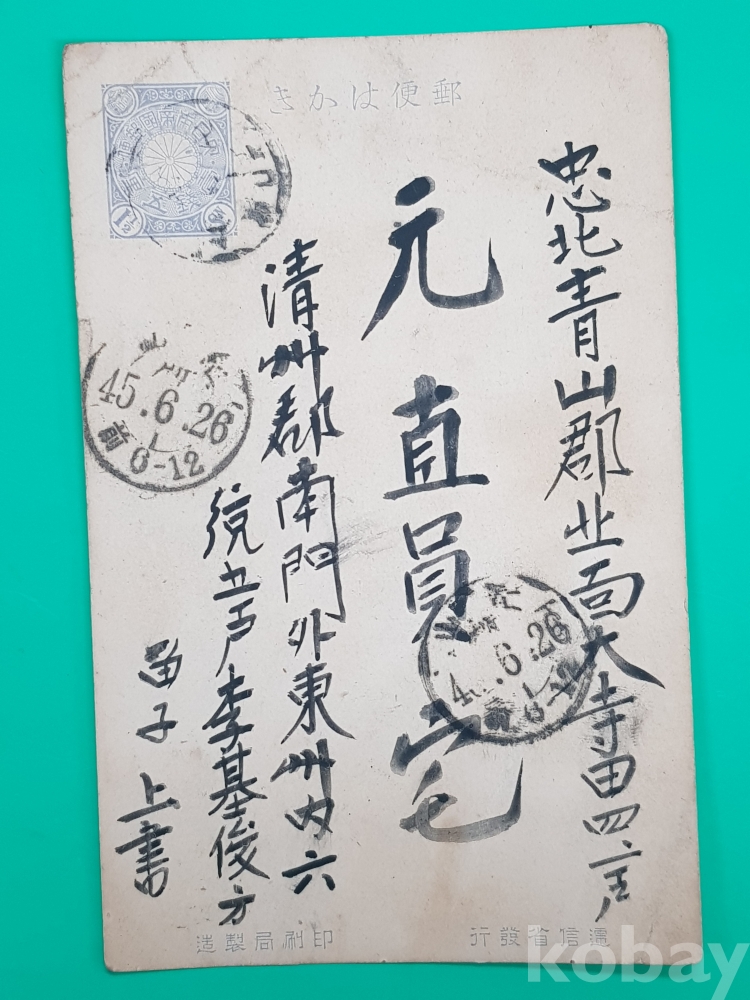 郵便はかき
忠北青山郡北面大寺田四戸
元直員宅
清州郡南門外東州内六
統五戸李基俊方
上書
45.6.26
前6-12
6.26
遞信省發行
印刷局製造
kobay